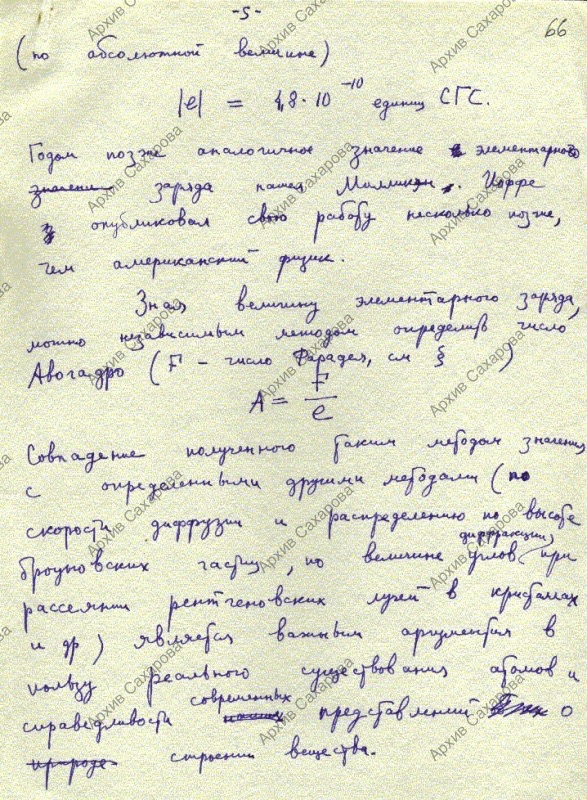 -5-
66
(по абсолютной величине)
|e| = 4,8·10⁻¹⁰ единиц СГС.
Годом позже аналогичное значение элементарного
значени заряда нашел Милликен. Иоффе
опубликовал свою работу несколько позже,
чем американский физик.
Зная величину элементарного заряда,
можно независимым методом определить число
Авогадро (F – число Фарадея, см § )
A = F/e
Совпадение полученного таким методом значения
с определенными другими методами (по
скорости диффузии и распределению по высоте
броуновских частиц, по величине углов дифракции при
рассеянии рентгеновских лучей в кристаллах
и др) является важным аргументом в
пользу реального существования атомов и
справедливости современных представлений о
природе строении вещества.
Архив Сахарова